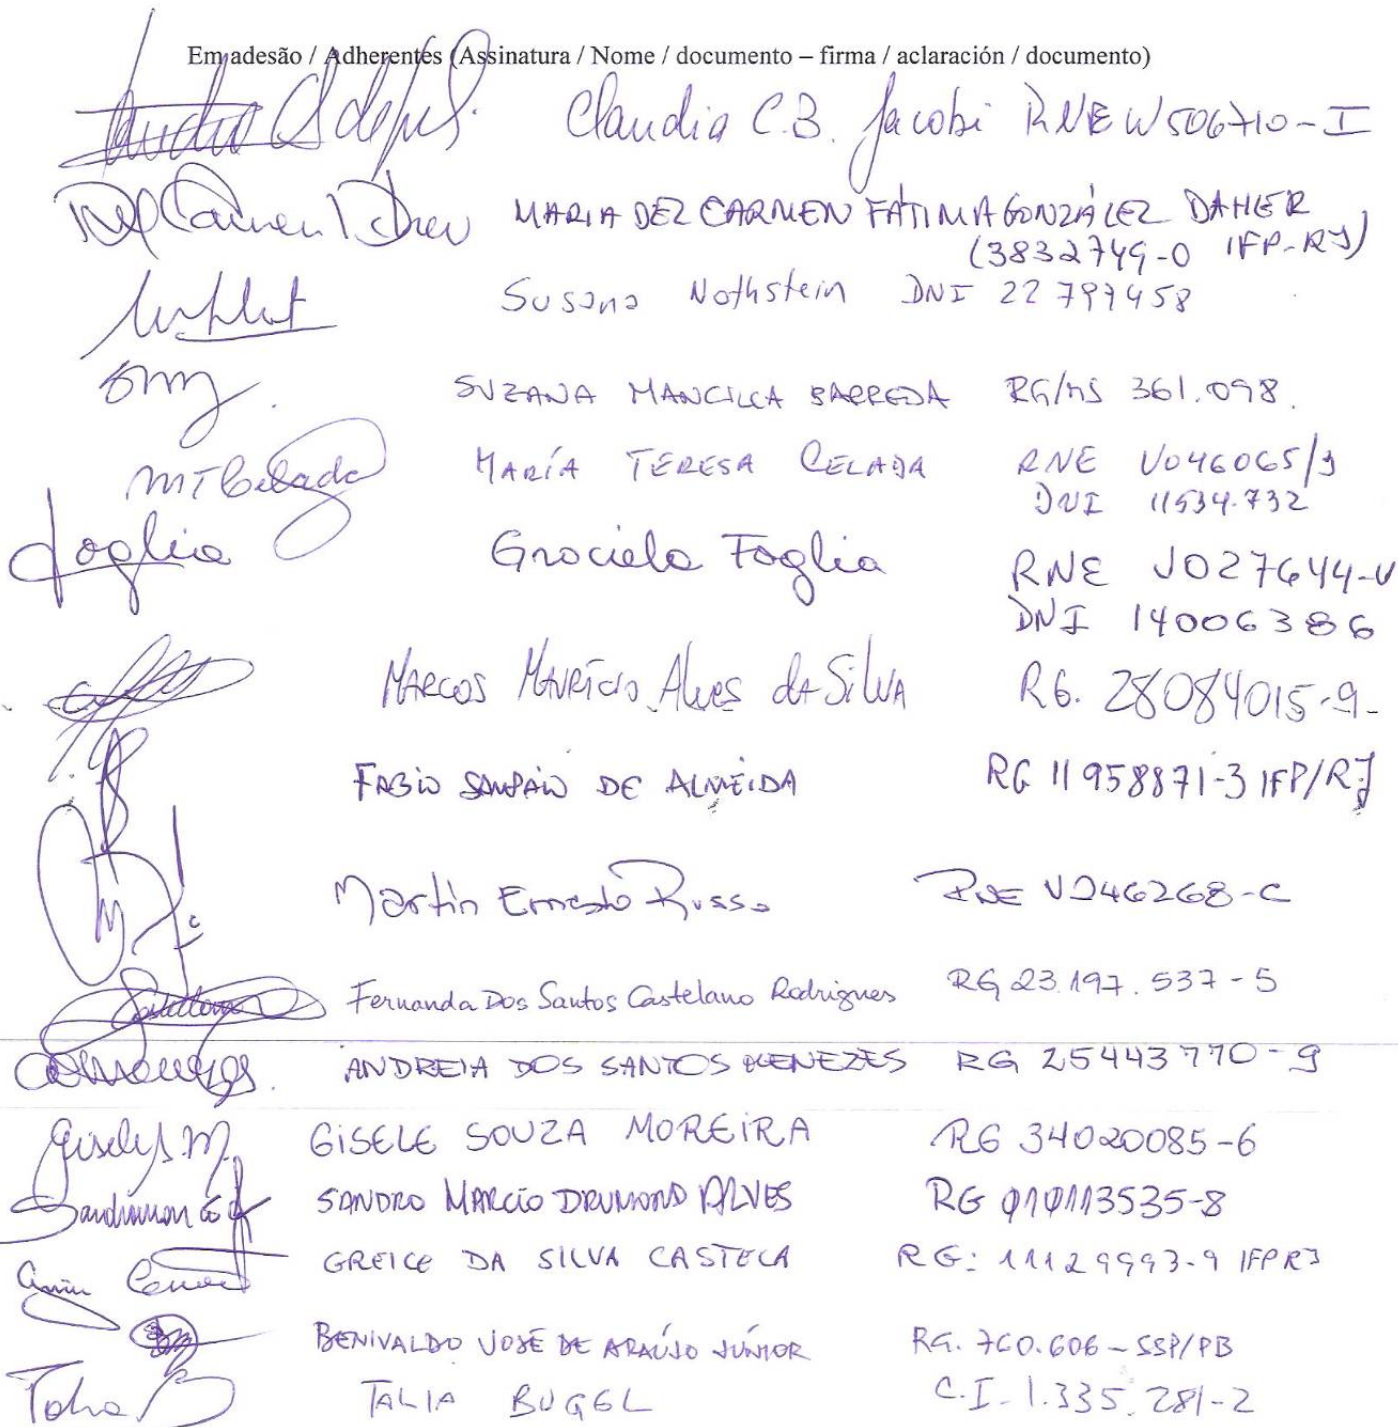 Em adesão / Adherentes (Assinatura / Nome / documento – firma / aclaración / documento)
Claudia C.B. Jacobi RNE W506710-I
MARIA DEL CARMEN FÁTIMA GONZÁLEZ DAHER
(3832749-0 IFP-RJ)
Susana Nothstein DNI 22 797458
SUZANA MANCILLA BARREDA RG/MS 361.098.
MTCelada MARÍA TERESA CELADA RNE V046065/J
DNI 11534.732
Foglia Graciela Foglia RNE J027644-U
DNI 14006386
MARCOS MAURÍCIO Alves da Silva RG. 28084015-9-
FABIO SAMPAIO DE ALMEIDA RG 11958871-3 IFP/RJ
Martín Ernesto Russo RNE VJ46268-C
Fernanda Dos Santos Castelano Rodrigues RG 23.197.537-5
ANDREIA DOS SANTOS MENEZES RG 25443770-9
Gisely S. M. GISELE SOUZA MOREIRA RG 34020085-6
SANDRO MARCIO DRUMOND ALVES RG 010113535-8
GREICE DA SILVA CASTELA RG: 11129993-9 IFPRJ
BENIVALDO JOSÉ DE ARAÚJO JÚNIOR RG. 760.606-SSP/PB
TALIA BUGEL C.I. 1.335.281-2